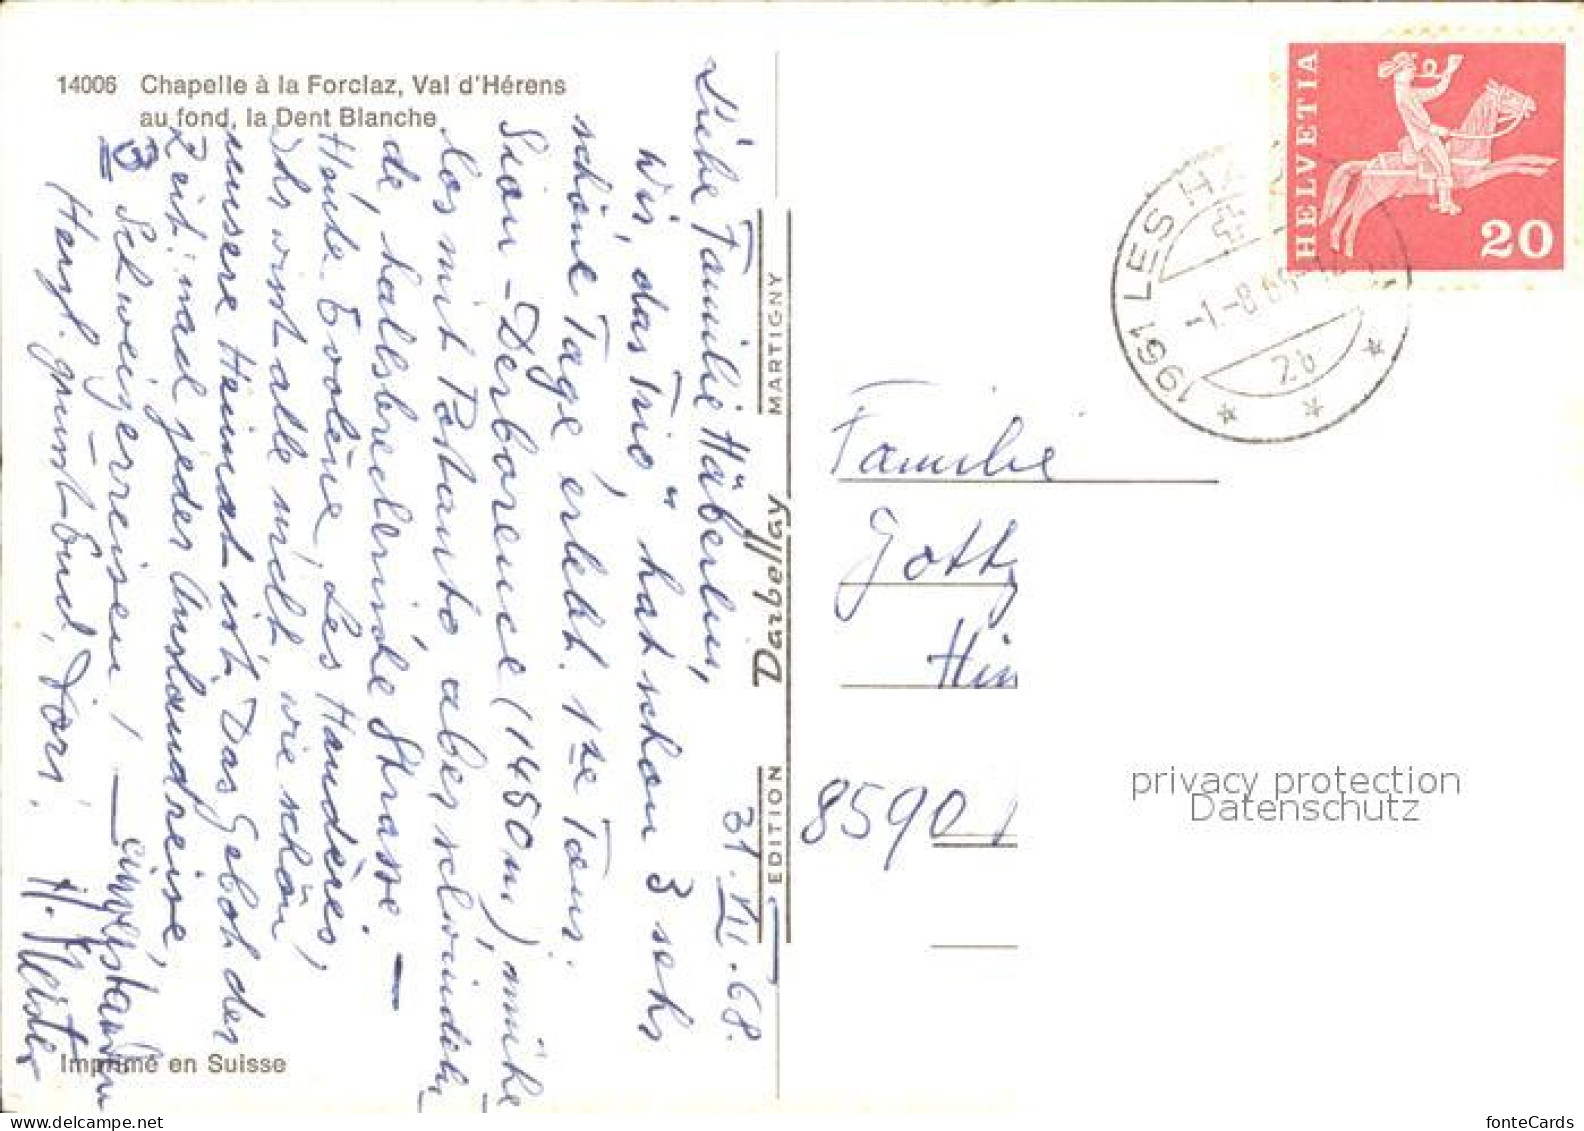 14006 Chapelle à la Forclaz, Val d'Hérens
au fond, la Dent Blanche
31.VII.68.
Liebe Familie Häberlin,
Wir, das Trio, hat schon 3 sehr
schöne Tage erlebt. 1te Tour:
Sion - Derborence (1450m), mühe
los mit Postauto, aber schwindeln
de, halsbrecherische Strasse. —
Heute Evolène, Les Haudères,
Ihr wisst alle nicht, wie schön
unsere Heimat ist. Das Gebot der
Zeit: mal jeder Auslandreise,
3 Schweizerreisen! —
einverstanden
Herzl. grüsst Euch, Doris.
H. Meister
Imprimé en Suisse
EDITION Darbellay MARTIGNY
HELVETIA
20
1961 LES HA
-1.-8.68
2b
Familie
Gott
Hin
8590
privacy protection
Datenschutz
fonteCards